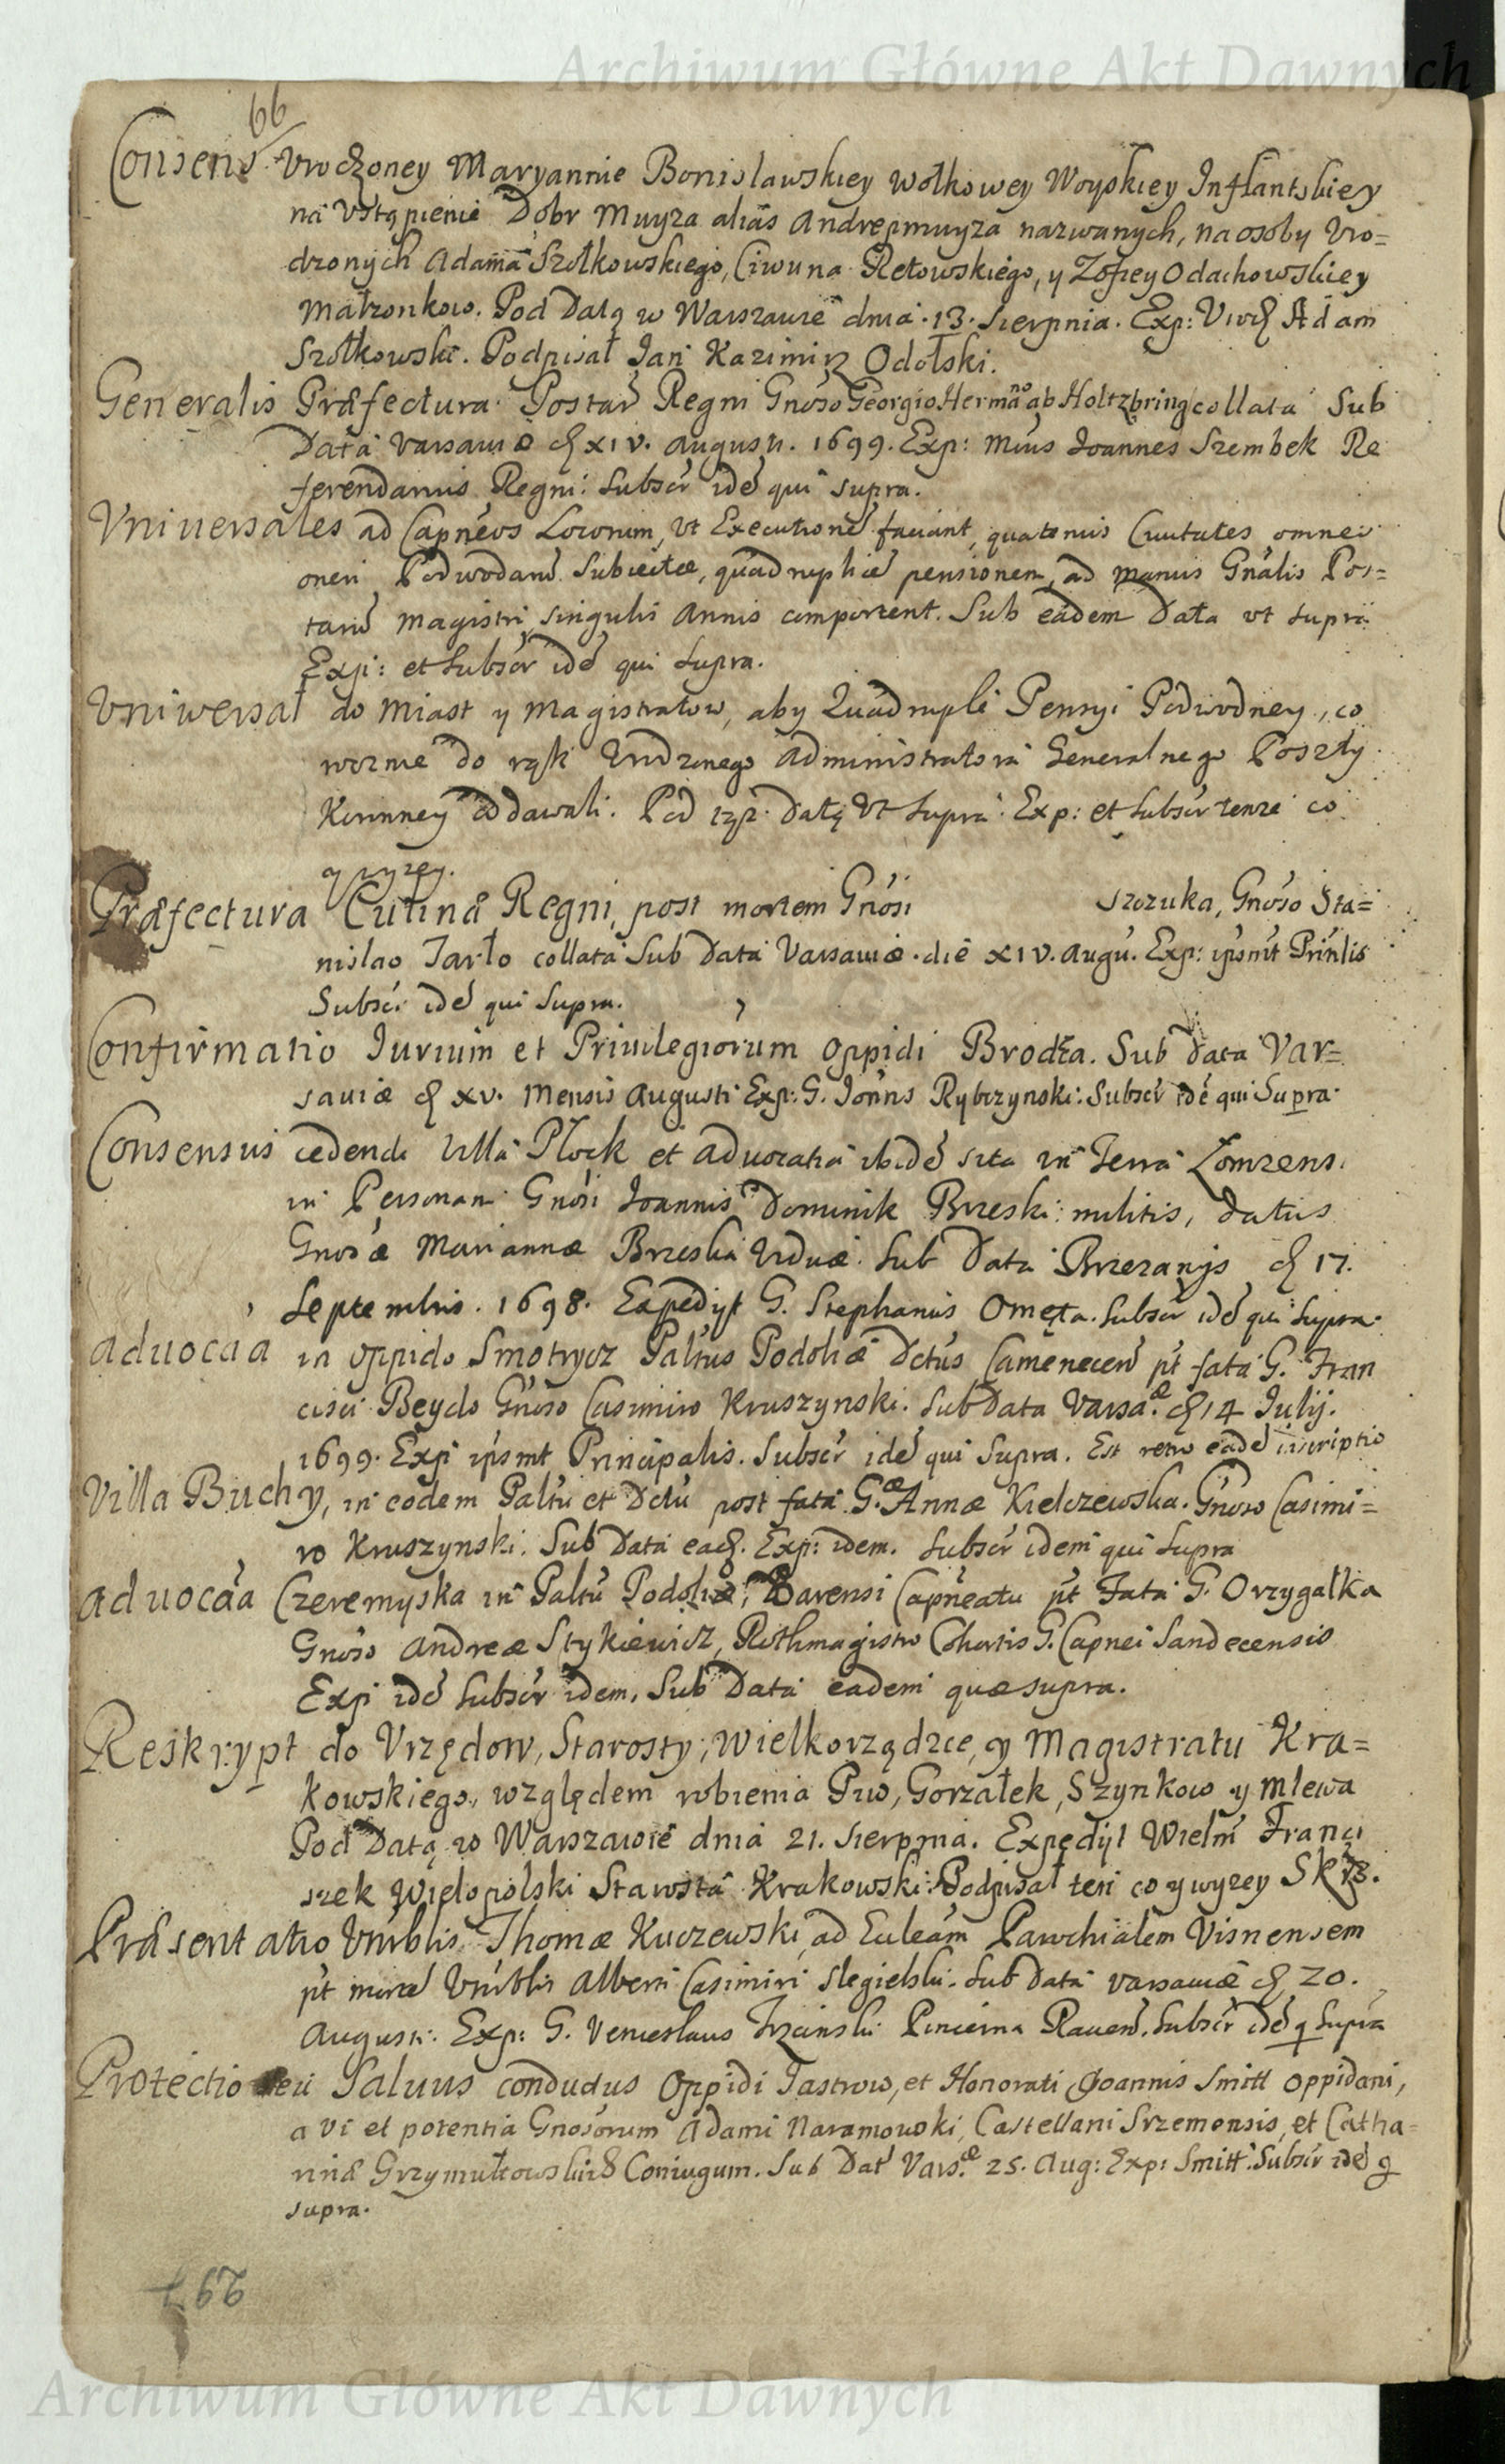 Archiwum Główne Akt Dawnych
66
Consens Vrodzoney Maryannie Bonislawskiey Wołkowey Woyskiey Inflantskiey
na Vstąpienie Dobr Muyza aliàs Andrepmuyza nazwanych, na osoby Vro=
dzonych Adama Szołkowskiego, Ciwuna Retowskiego, y Zofiey Odachowskiey
Małzonkow. Pod Datą w Warszawie dnia 13. Sierpnia. Exp: Vrod Adam
Szołkowski. Podpisał Jan Kazimirz Odolski.
Generalis Præfectura Postar Regni Gnoso Georgio Hermano ab Holtzbring collata Sub
Data Varsaviæ d XIV. Augusti. 1699. Exp: Mius Ioannes Szembek Re
ferendarius Regni: Subscr idē qui supra.
Vniuersales ad Capneos Locorum, vt Executionē faciant, quatenus Ciuitates omnes
oneri Podwodarū Subiectæ, quadruplicē pensionem, ad manus Gnalis Pos=
tarū Magistri singulis Annis comportent. Sub eadem Data vt supra
Expi: et Subscr idē qui supra.
Vniwersał do Miast y Magistratow, aby Quadruple Pensyi Podwodney, co
rocznie do rąk Urdzonego Administratora Generalnego Poszty
Koronney oddawali. Pod tąz Datą Vt Supra. Exp: et Subscr tenze co
y wyzey.
Præfectura Culinæ Regni, post mortem Gnosi Szczuka, Gnoso Sta=
nislao Tarło collata Sub Data Varsaviæ die XIV. Augu. Exp: ipsmt Prinlis
Subscr idē qui Supra.
Confirmatio Iurium et Priuilegiorum Oppidi Brodła. Sub Data Var=
sauiæ d XV. Mensis Augusti Exp: G. Ioñns Rybczynski: Subscr idē qui Supra.
Consensus cedendi Villa Płock et Aduocatia ibidē sita in Terra Łomzens.
in Personam Gnosi Ioannis Dominik Brzeski: militis, datus
Gnosæ Mariannæ Brzeska Viduæ. Sub Data Brzezanijs d 17.
Septembris. 1698. Expedijt G. Stephanus Omęta. Subscr idē qui Supra.
Aduocaa in Oppido Smotrycz Paltus Podoliæ Dctus Camenecen pt fata G. Fran
cisci Beydo Gnoso Casimiro Kruszynski. Sub Data Varsa.æ d 14 Julij.
1699. Expi ipsmt Principalis. Subscr idē qui Supra. Est retro eadē inscriptio
Villa Buchy, in eodem Paltu et Dctu post fata G.æ Annæ Kielczewska. Gnoso Casimi=
ro Kruszynski. Sub Data ead. Exp: idem. Subscr idem qui Supra
Aduocaa Czeremyska in Paltu Podoliæ, Barensi Capneatu pt Fata G. Orzygałka
Gnoso Andreæ Stykiewicz, Rothmagistro Cohortis G. Capnei Sandecensis
Expi idē Subscr idem. Sub Data eadem quæ supra.
Reskrypt do Vrzędow, Starosty, Wielkorządzce, y Magistratu Kra=
kowskiego, względem robienia Piw, Gorzałek, Szynkow y Mlewa
Pod Datą w Warszawie dnia 21. Sierpnia. Expedijt Wielm Franci
szek Wielopolski Starosta Krakowski: Podpisał ten co y wyzey
Præsentatio Vnrblis Thomæ Kuczewski, ad Euleam Parochialem Visnensem
pt mortē Vnrblis Alberti Casimiri Slegielski. Sub Data Varsauiæ d 20.
Augusti. Exp: G. Venceslaus Trzcinski Pincerna Raven. Subscr idē q Supra
Protectio seu Saluus conductus Oppidi Jastrow, et Honorati Joannis Smitt Oppidani,
a vi et potentia Gnosorum Adami Naramowski, Castellani Srzemensis, et Catha=
rinæ Grzymułtowskie Coniugum. Sub Dat Vars.æ 25. Aug: Exp: Smitt. Subscr idē q
supra.
Archiwum Główne Akt Dawnych